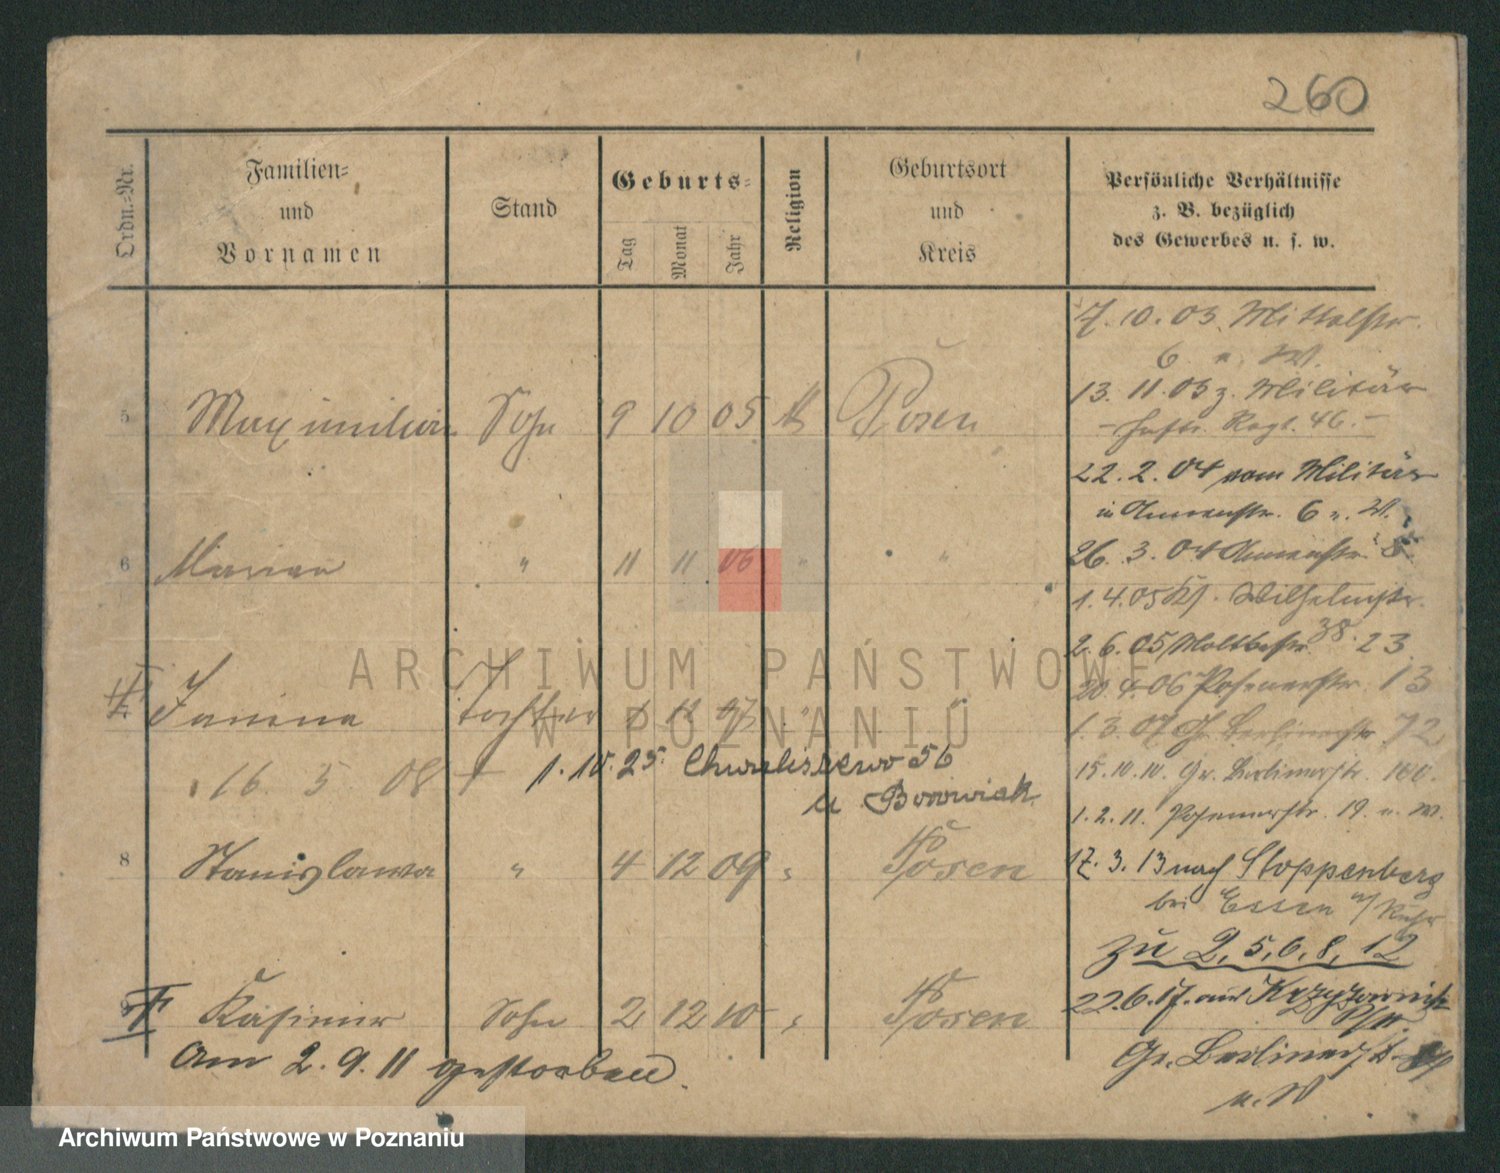 260
Ordn.-Nr.
Familien-
und
Vornamen
Stand
Geburts-
Tag
Monat
Jahr
Religion
Geburtsort
und
Kreis
Persönliche Verhältnisse
z. B. bezüglich
des Gewerbes u. s. w.
5 Maximilian Sohn 9 10 05 Posen
6 Marian " 11 11 06 " "
Janina Tochter 11 "
16. 5 08 †
1.10.25. Chwaliszewo 56
u Borowiak
8 Stanislawa " 4 12 09 " Posen
9 Kasimir Sohn 2 12 10 " Posen
Am 2.9.11 gestorben.
7.10.03. Mittelstr.
6 u. W.
13.11.03 z. Militär
Regt. 46.
22.2.04 vom Militär
in 6 u. W.
26.3.04
1.4.05 Wilhelmstr.
38.
2.6.05 Moltkestr. 23
20.4.06 Posenerstr. 13
1.3.07 Gr. Berlinerstr. 72
15.10.10. Gr. Berlinerstr. 100.
1.2.11. Posenerstr. 19. u. W.
17.3.13 nach Stoppenberg
bei Essen a/Ruhr
zu 2, 5, 6, 8, 12
22.6.17. aus
Gr. Berlinerstr.
u. W
ARCHIWUM PAŃSTWOWE
W POZNANIU
Archiwum Państwowe w Poznaniu